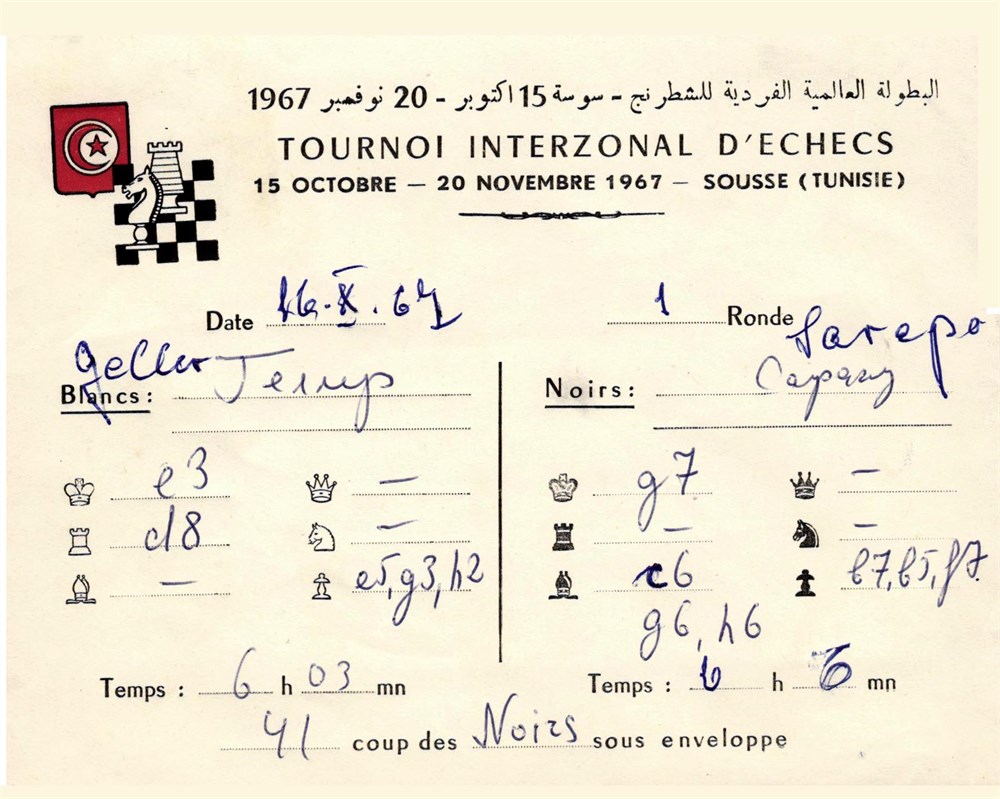 البطولة العالمية الفردية للشطرنج - سوسة 15 اكتوبر - 20 نوفمبر 1967
TOURNOI INTERZONAL D'ECHECS
15 OCTOBRE — 20 NOVEMBRE 1967 — SOUSSE (TUNISIE)
Date 16.X.67 1 Ronde
Geller Sarapo
Blancs : Геллер Noirs : Сарапу
e3 — g7 —
d8 — — —
— e5, g3, h2 c6 b7, b5, f7
g6, h6
Temps : 6 h 03 mn Temps : 6 h 6 mn
41 coup des Noirs sous enveloppe